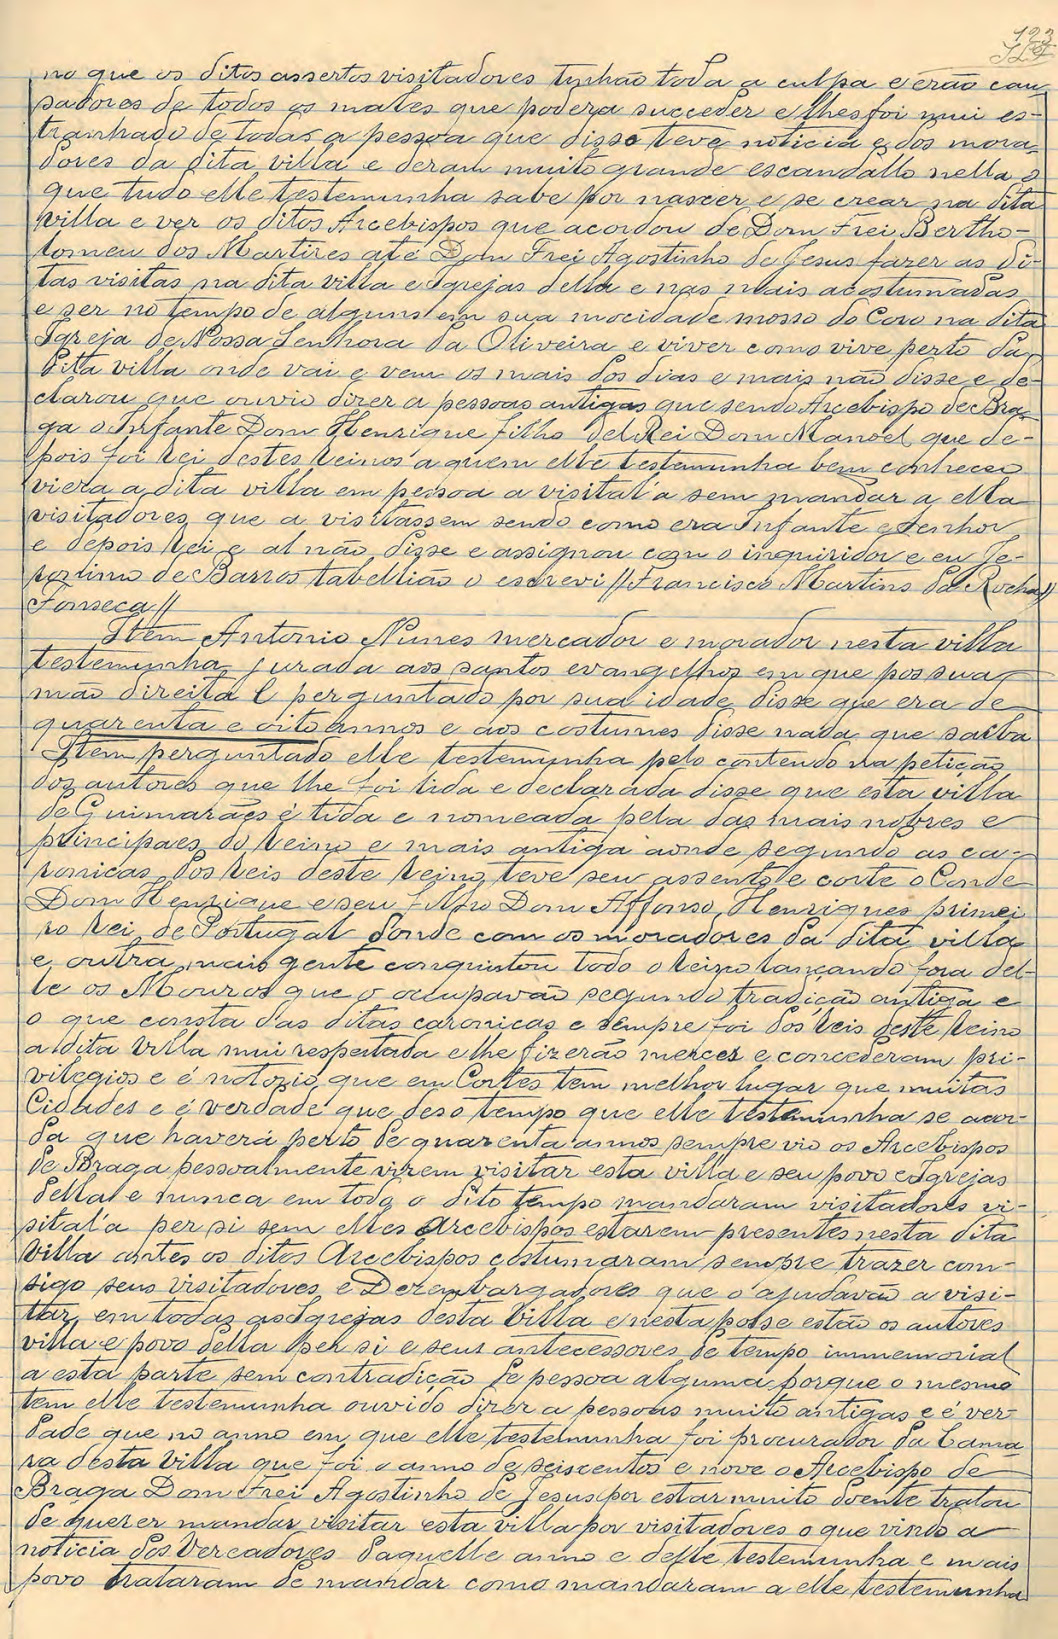 123
no que os ditos assertos visitadores tynhão toda a culpa e erão cau-
sadores de todos os males que podera succeder e lhes foi mui es-
tranhado de todas a pessoa que disso teve noticia e dos mora-
dores da dita villa e deram muito grande escandallo nella o
que tudo elle testemunha sabe por nascer e se crear na dita
villa e ver os ditos Arcebispos que acordou de Dom Frei Bertho-
lomeu dos Martires até Dom Frei Agostinho de Jesus fazer as di-
tas visitas na dita villa e Igrejas della e nas mais acostumadas
e ser no tempo de alguns em sua mocidade mosso do Coro na dita
Igreja de Nossa Senhora da Oliveira e viver como vive perto da
dita villa onde vai e vem os mais dos dias e mais não disse e de-
clarou que ouvio dizer a pessoas antigas que sendo Arcebispo de Bra-
ga o Infante Dom Henrique filho del Rei Dom Manoel que de-
pois foi Rei destes Reinos a quem elle testemunha bem conheceo
viera a dita villa em pessoa a visital'a sem mandar a ella
visitadores que a visitassem sendo como era Infante e Senhor
e depois Rei e al não disse e assignou com o inquiridor e eu Je-
rozlimo de Barros tabellião o escrevi // Francisco Martins da Rocha //
Fonseca //
Item Antonio Nunes mercador e morador nesta villa
testemunha jurada aos santos evangelhos em que pos sua
mão direita e perguntado por sua idade disse que era de
quarenta e oito annos e aos costumes disse nada que saiba
Item perguntado elle testemunha pelo contendo na petição
dos autores que lhe foi lida e declarada disse que esta villa
de Guimarães é tida e nomeada pela das mais nobres e
principaes do Reino e mais antiga aonde segundo as ca-
ronicas dos Reis deste Reino teve seu assento e corte o Conde
Dom Henrique e seu filho Dom Affonso Henriques primei
ro Rei de Portugal donde com os moradores da dita villa
e outra mais gente conquistou todo o Reino lançando fora del-
le os Mouros que o occupavão segundo tradição antiga e
o que consta das ditas caronicas e sempre foi dos Reis deste Reino
a dita Villa mui respeitada e lhe fizerão merces e concederam pri-
vilegios e é notorio que em Cortes tem melhor lugar que muitas
Cidades e é verdade que des o tempo que elle testemunha se acor-
da que haverá perto de quarenta annos sempre vio os Arcebispos
de Braga pessoalmente virem visitar esta villa e seu povo e Igrejas
della e nunca em todo o dito tempo mandaram visitadores vi-
sital'a per si sem elles Arcebispos estarem presentes nesta dita
Villa antes os ditos Arcebispos costumaram sempre trazer com-
sigo seus visitadores e Dezembargadores que o ajudavão a visi-
tar em todas as Igrejas desta Villa e nesta posse estão os autores
villa e povo della per si e seus antecessores de tempo immemorial
a esta parte sem contradição de pessoa alguma porque o mesmo
tem elle testemunha ouvido dizer a pessoas muito antigas e é ver-
dade que no anno em que elle testemunha foi procurador da Cama
ra desta Villa que foi o anno de seiscentos e nove o Arcebispo de
Braga Dom Frei Agostinho de Jesus por estar muito doente tratou
de querer mandar visitar esta villa por visitadores o que vindo a
noticia dos Vereadores daquelle anno e delle testemunha e mais
povo trataram de mandar como mandaram a elle testemunha